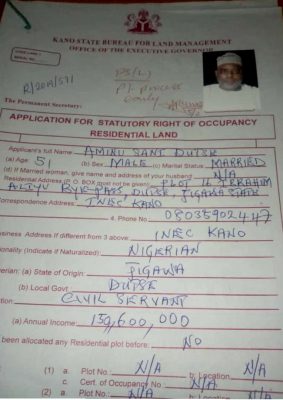 KANO STATE BUREAU FOR LAND MANAGEMENT
OFFICE OF THE EXECUTIVE GOVERNOR
PS(L)
Pl. process
The Permanent Secretary:
APPLICATION FOR STATUTORY RIGHT OF OCCUPANCY
RESIDENTIAL LAND
Applicant's full Name AMINU SANI DUTSE
(a) Age 51 (b) Sex MALE (c) Marital Status MARRIED
(d) If Married woman, give name and address of your husband N/A
Residential Address (P.O. BOX must not be given) PLOT 16 IBRAHIM
ALIYU BYE-PASS, DUTSE, JIGAWA STATE
Correspondence Address INEC KANO
4. Phone No 08035902447
siness Address If different from 3 above
INEC KANO
tionality (Indicate if Naturalized) NIGERIAN
erian: (a) State of Origin JIGAWA
(b) Local Govt DUTSE
ation CIVIL SERVANT
(a) Annual Income 159,600,000
been allocated any Residential plot before: NO
(1) a. Plot No. N/A b. Location N/A
c. Cert. of Occupancy No. N/A
(2) a. Plot No. N/A b. Location